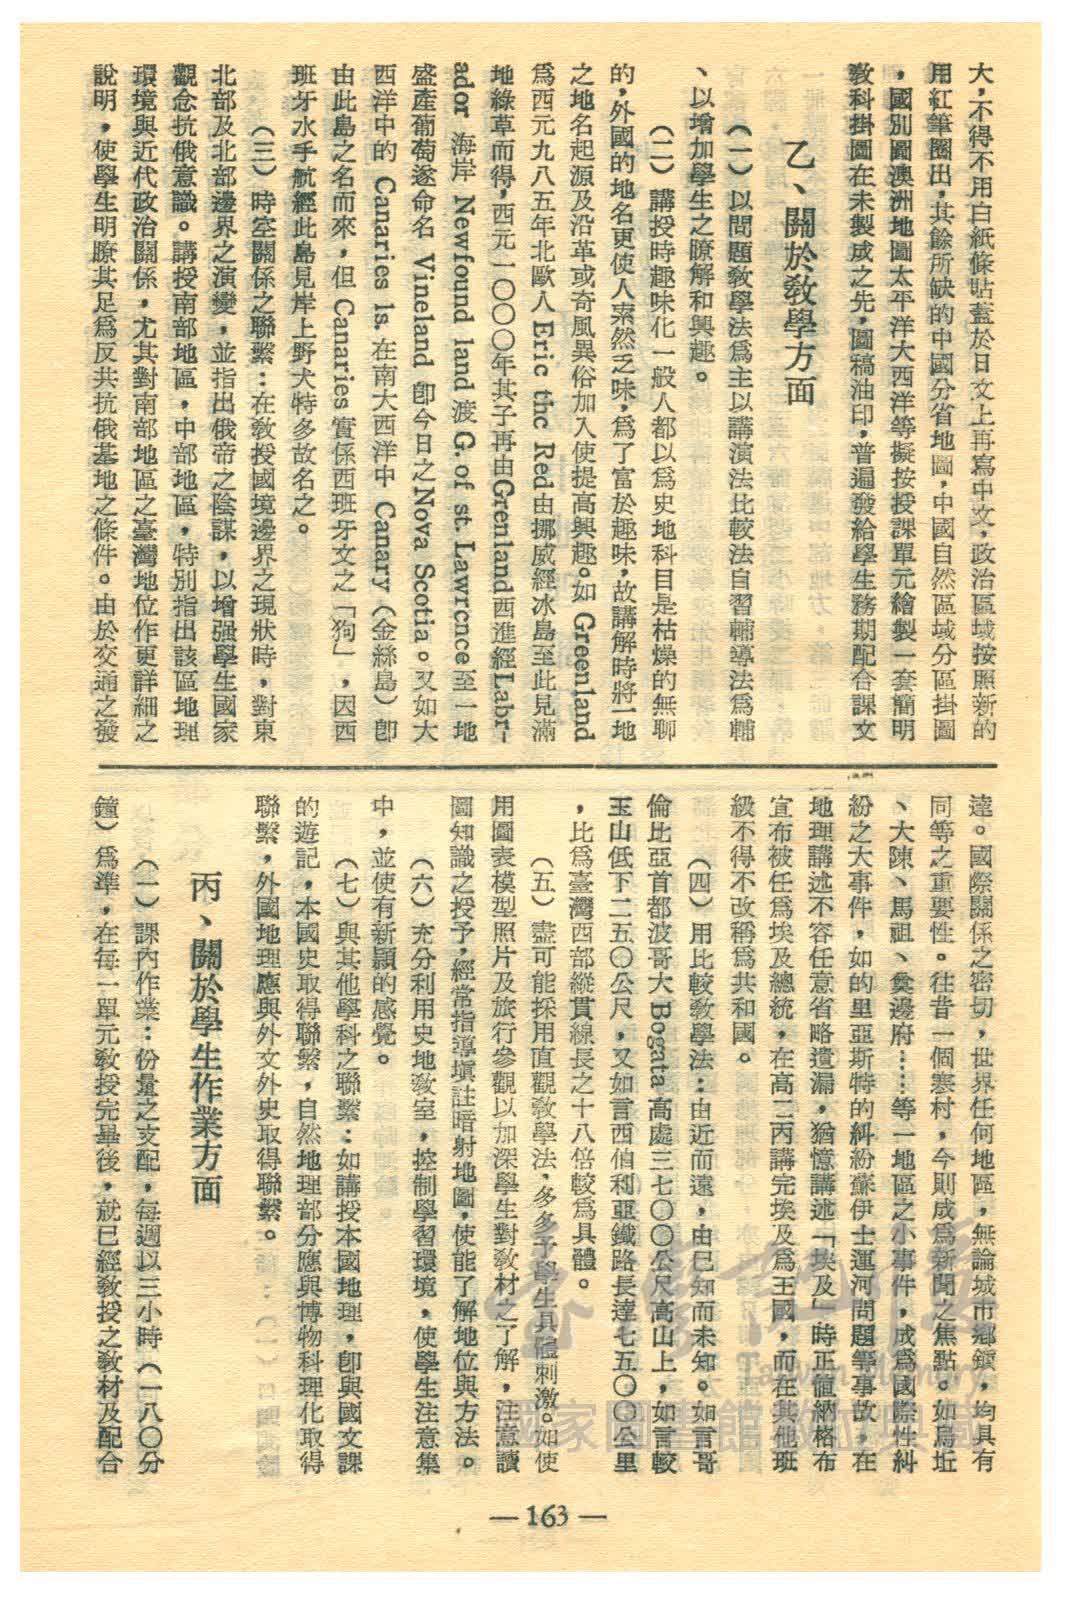 大，不得不用白紙條貼蓋於日文上再寫中文，政治區域按照新的
用紅筆圈出，其餘所缺的中國分省地圖，中國自然區域分區掛圖
，國別圖澳洲地圖太平洋大西洋等擬按授課單元繪製一套簡明
教科掛圖在未製成之先，圖稿油印，普遍發給學生務期配合課文
乙、關於教學方面
（一）以問題教學法爲主以講演法比較法自習輔導法爲輔
、以增加學生之瞭解和興趣。
（二）講授時趣味化一般人都以爲史地科目是枯燥的無聊
的，外國的地名更使人索然乏味，爲了富於趣味，故講解時將一地
之地名起源及沿革或奇風異俗加入使提高興趣。如 Greenland
爲西元九八五年北歐人 Eric the Red由挪威經冰島至此見滿
地綠草而得，西元一〇〇〇年其子再由Grenland西進經Labr-
ador 海岸 Newfound land 渡 G. of st. Lawrence至一地
盛產葡萄遂命名 Vineland 卽今日之Nova Scotia。又如大
西洋中的 Canaries Is. 在南大西洋中 Canary（金絲島）卽
由此島之名而來，但 Canaries 實係西班牙文之「狗」，因西
班牙水手航經此島見岸上野犬特多故名之。
（三）時室關係之聯繫：在敎授國境邊界之現狀時，對東
北部及北部邊界之演變，並指出俄帝之陰謀，以增强學生國家
觀念抗俄意識。講授南部地區，中部地區，特別指出該區地理
環境與近代政治關係，尤其對南部地區之臺灣地位作更詳細之
說明，使學生明瞭其足爲反共抗俄基地之條件。由於交通之發
達。國際關係之密切，世界任何地區，無論城市鄉鎮，均具有
同等之重要性。往昔一個寒村，今則成爲新聞之焦點。如烏坵
、大陳、馬祖、奠邊府……等一地區之小事件，成爲國際性糾
紛之大事件，如的里亞斯特的糾紛蘇伊士運河問題等事故，在
地理講述不容任意省略遺漏，猶憶講述「埃及」時正值納格布
宣布被任爲埃及總統，在高二丙講完埃及爲王國，而在其他班
級不得不改稱爲共和國。
（四）用比較敎學法：由近而遠，由已知而未知。如言哥
倫比亞首都波哥大 Bogata 高處三七〇〇公尺高山上，如言較
玉山低下二五〇公尺，又如言西伯利亞鐵路長達七五〇〇公里
，比爲臺灣西部縱貫線長之十八倍較爲具體。
（五）盡可能採用直觀敎學法，多多予學生具體刺激。如使
用圖表模型照片及旅行參觀以加深學生對敎材之了解，注意讀
圖知識之授予，經常指導塡註暗射地圖，使能了解地位與方法。
（六）充分利用史地敎室，控制學習環境，使學生注意集
中，並使有新穎的感覺。
（七）與其他學科之聯繫：如講授本國地理，卽與國文課
的遊記，本國史取得聯繫，自然地理部分應與博物科理化取得
聯繫，外國地理應與外文外史取得聯繫。
丙、關於學生作業方面
（一）課內作業：份量之支配，每週以三小時（一八〇分
鐘）爲準，在每一單元敎授完畢後，就已經敎授之敎材及配合
—163—
臺灣記憶
Taiwan Memory
國家圖書館數位典藏